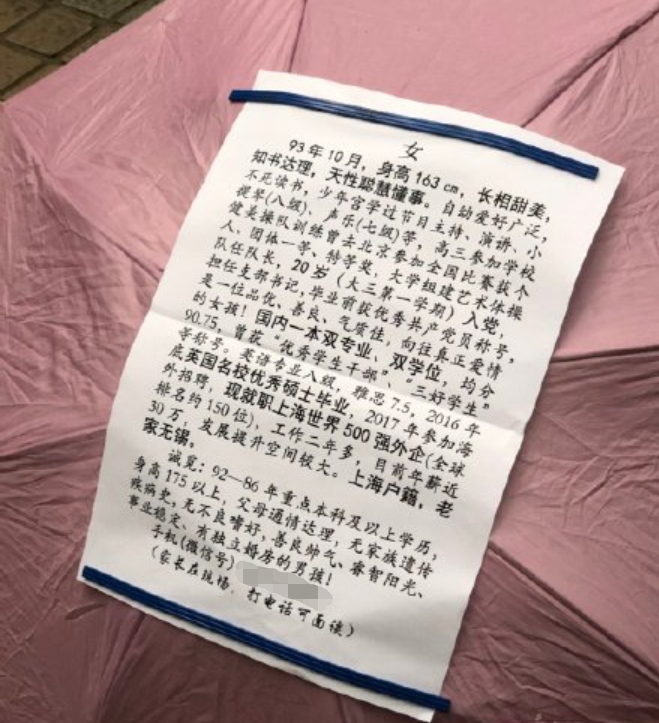 女
93年10月，身高163cm，长相甜美，
知书达理，天性聪慧懂事。自幼爱好广泛，
不死读书，少年宫学过节目主持、演讲、小
提琴(八级)、声乐(七级)等，高三参加学校
健美操队训练曾去北京参加全国比赛获个
人、团体一等、特等奖，大学组建艺术体操
队任队长，20岁（大三第一学期）入党，
担任支部书记，毕业前获优秀共产党员称号，
是一位品优、善良、气质佳，向往真正爱情
的女孩！国内一本双专业、双学位，均分
90.75，曾获“优秀学生干部”、“三好学生”
等称号。英语专业八级，雅思7.5，2016年
底英国名校优秀硕士毕业，2017年参加海
外招聘，现就职上海世界500强外企(全球
排名约150位)，工作二年多，目前年薪近
30万，发展提升空间较大。上海户籍，老
家无锡。
诚觅：92—86年重点本科及以上学历，
身高175以上，父母通情达理，无家族遗传
疾病史，无不良嗜好，善良帅气、睿智阳光、
事业稳定、有独立婚房的男孩！
手机(微信号)
(家长在现场，打电话可面谈)